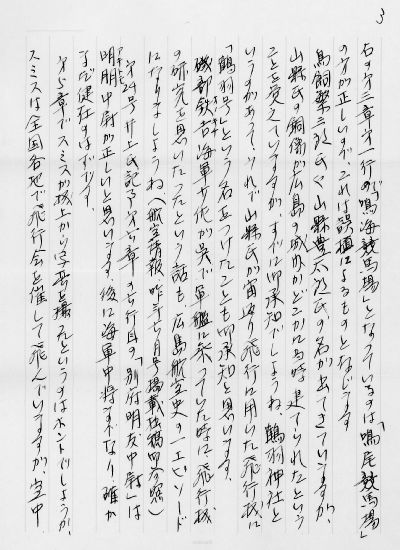 3
右の第三章第一行の「鳴海競馬場」となっているのは「鳴尾競馬場」
の方が正しいので、これは誤植によるものと存じます
鳥飼繁三郎氏や山縣豊太郎氏の名が出てきていますが、
山縣氏の銅像が広島の城内かどこかに当時建てられたという
ことを覚えていますが、すでに御承知でしょうね、鶴羽神社と
いうのがあって、それで山縣氏が宙返り飛行に用いた飛行機に
「鶴羽号」という名をつけたことも御承知と思います。
磯部鉄吉海軍少佐が呉で軍艦に乗っていた時に飛行機
の研究を思いたったという話も広島航空史の一エピソード
になりましょうね（航空情報 昨年七月号掲載拙稿御参照）
第24号井上氏記了 第六章の 行目の「別府明友中尉」は
明朋中尉が正しいと思います。後に海軍中将までなり 確か
まだ健在のはずです。
第5章でスミスが機上から写真を撮ったというのはホントでしょうか、
スミスは全国各地で飛行会を催して飛んでいますが、空中